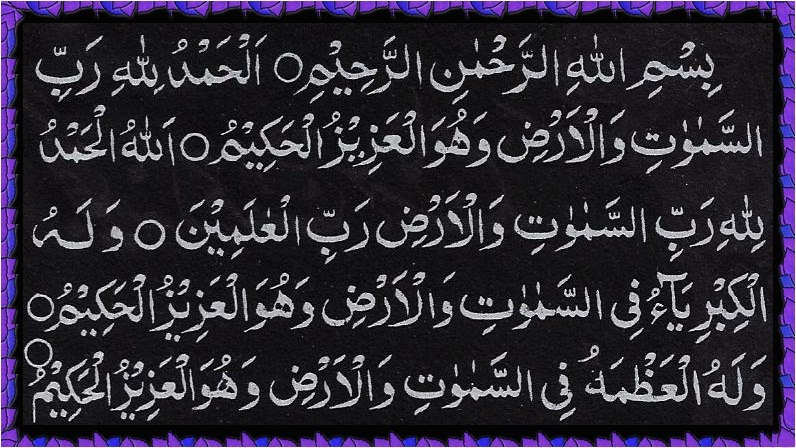 بِسْمِ اللهِ الرَّحْمٰنِ الرَّحِيْمِ○ اَلْحَمْدُ لِلّٰهِ رَبِّ
السَّمٰوٰتِ وَالْاَرْضِ وَهُوَ الْعَزِيْزُ الْحَكِيْمُ○ اَللّٰهُ الْحَمْدُ
لِلّٰهِ رَبِّ السَّمٰوٰتِ وَالْاَرْضِ رَبِّ الْعٰلَمِيْنَ ○ وَلَهُ
الْكِبْرِيَآءُ فِى السَّمٰوٰتِ وَالْاَرْضِ وَهُوَ الْعَزِيْزُ الْحَكِيْمُ○
وَلَهُ الْعَظْمَهُ فِى السَّمٰوٰتِ وَالْاَرْضِ وَهُوَ الْعَزِيْزُ الْحَكِيْمُ○